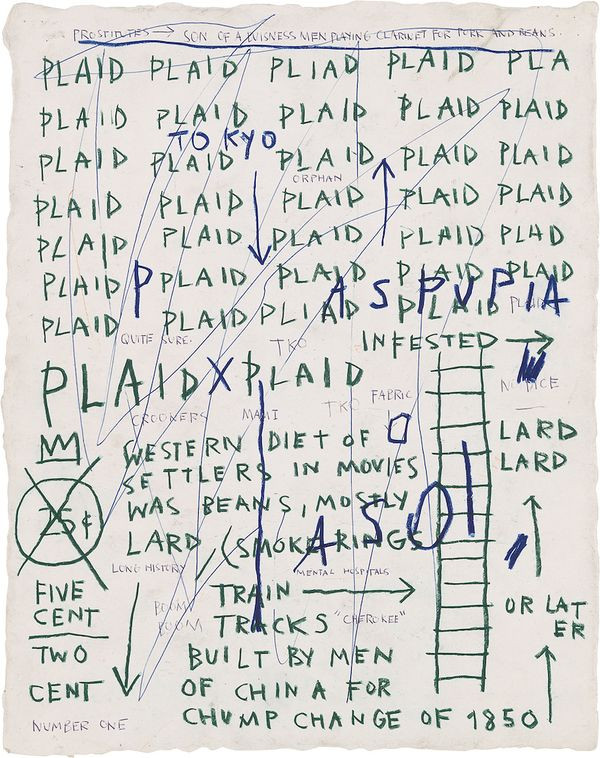 PROSTITUTES → SON OF A BUISNESS MEN PLAYING CLARINET FOR PORK AND BEANS.
PLAID PLAID PLIAD PLAID PLA
PLAID PLAID PLAID PLAID PLAID
TOKYO
PLAID PLAID PLAID PLAID PLAID
ORPHAN
PLAID PLAID PLAID PLAID PLAID
PLAID PLAID PLAID PLAID PLAD
PLAID P PLAID PLAID PLAID PLAID
ASPUPIA
PLAID PLAID PLIAD PLAID PLAID
QUITE SURE. TKO INFESTED →
PLAID X PLAID
NOTICE
CROOKERS MAMI TKO FABRIC
WESTERN DIET OF
SETTLERS IN MOVIES
WAS BEANS, MOSTLY
LARD (SMOKE RINGS
LARD
LARD
25¢
ASOI
LONG HISTORY MENTAL HOSPITALS
FIVE
CENT
TWO
CENT
NUMBER ONE
BOOM
BOOM
TRAIN →
TRACKS "CHEROKEE"
BUILT BY MEN
OF CHINA FOR
CHUMP CHANGE OF 1850
OR LAT
ER